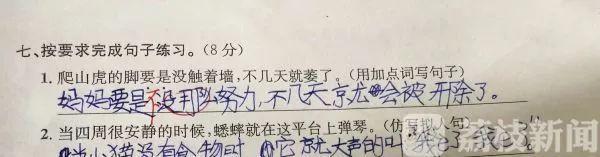 七、按要求完成句子练习。(8分)
1. 爬山虎的脚要是没触着墙,不几天就萎了。(用加点词写句子)
妈妈要是没那么努力,不几天 就会被开除了。
2. 当四周很安静的时候,蟋蟀就在这平台上弹琴。(仿写 句)
当小猫没有食物时 它就大声的叫
荔枝新闻